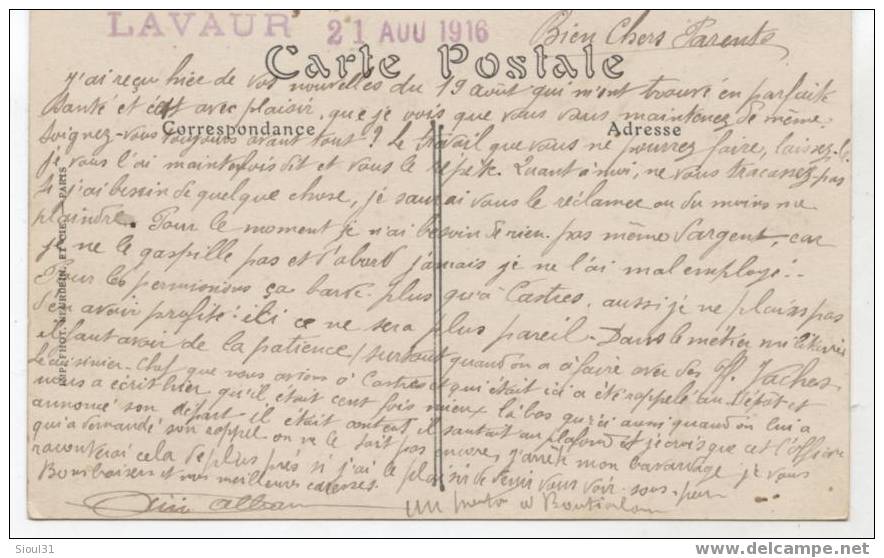 LAVAUR 21 AOU 1916
Bien Chers Parents
Carte Postale
J'ai reçu hier de vos nouvelles du 19 août qui m'ont trouvé en parfaite
santé et c'est avec plaisir que je vois que vous vous maintenez de même.
Correspondance Adresse
Soignez-vous toujours avant tout! Le travail que vous ne pourrez faire, laissez-le
je vous l'ai maintes fois dit et vous le répète. Quant à moi, ne vous tracassez pas
si j'ai besoin de quelque chose, je saurai vous le réclamer ou du moins me
plaindre. Pour le moment je n'ai besoin de rien. pas même d'argent, car
je ne le gaspille pas et d'abord jamais je ne l'ai mal employé!..
Pour les permissions ça barde plus qu'à Castres, aussi je ne plains pas
d'en avoir profité: ici ce ne sera plus pareil. Dans le métier militaire
il faut avoir de la patience, surtout quand on a à faire avec des off. Vaches.
Le cuisinier-chef que nous avions à Castres et qui était ici a été rappelé au Dépôt et
nous a écrit hier qu'il était cent fois mieux là bas qu'ici aussi quand on lui a
annoncé son départ il était content il sautait au plafond et je crois que cet l'officier
qui a demandé son rappel on ne le sait pas encore, j'arrête mon bavardage je vous
raconterai cela de plus près si j'ai le plaisir de venir vous voir sous peu
et mes meilleures caresses.
IMP. PHOT. NEURDEIN ET CIE. PARIS
Sioul31
delcampe.net